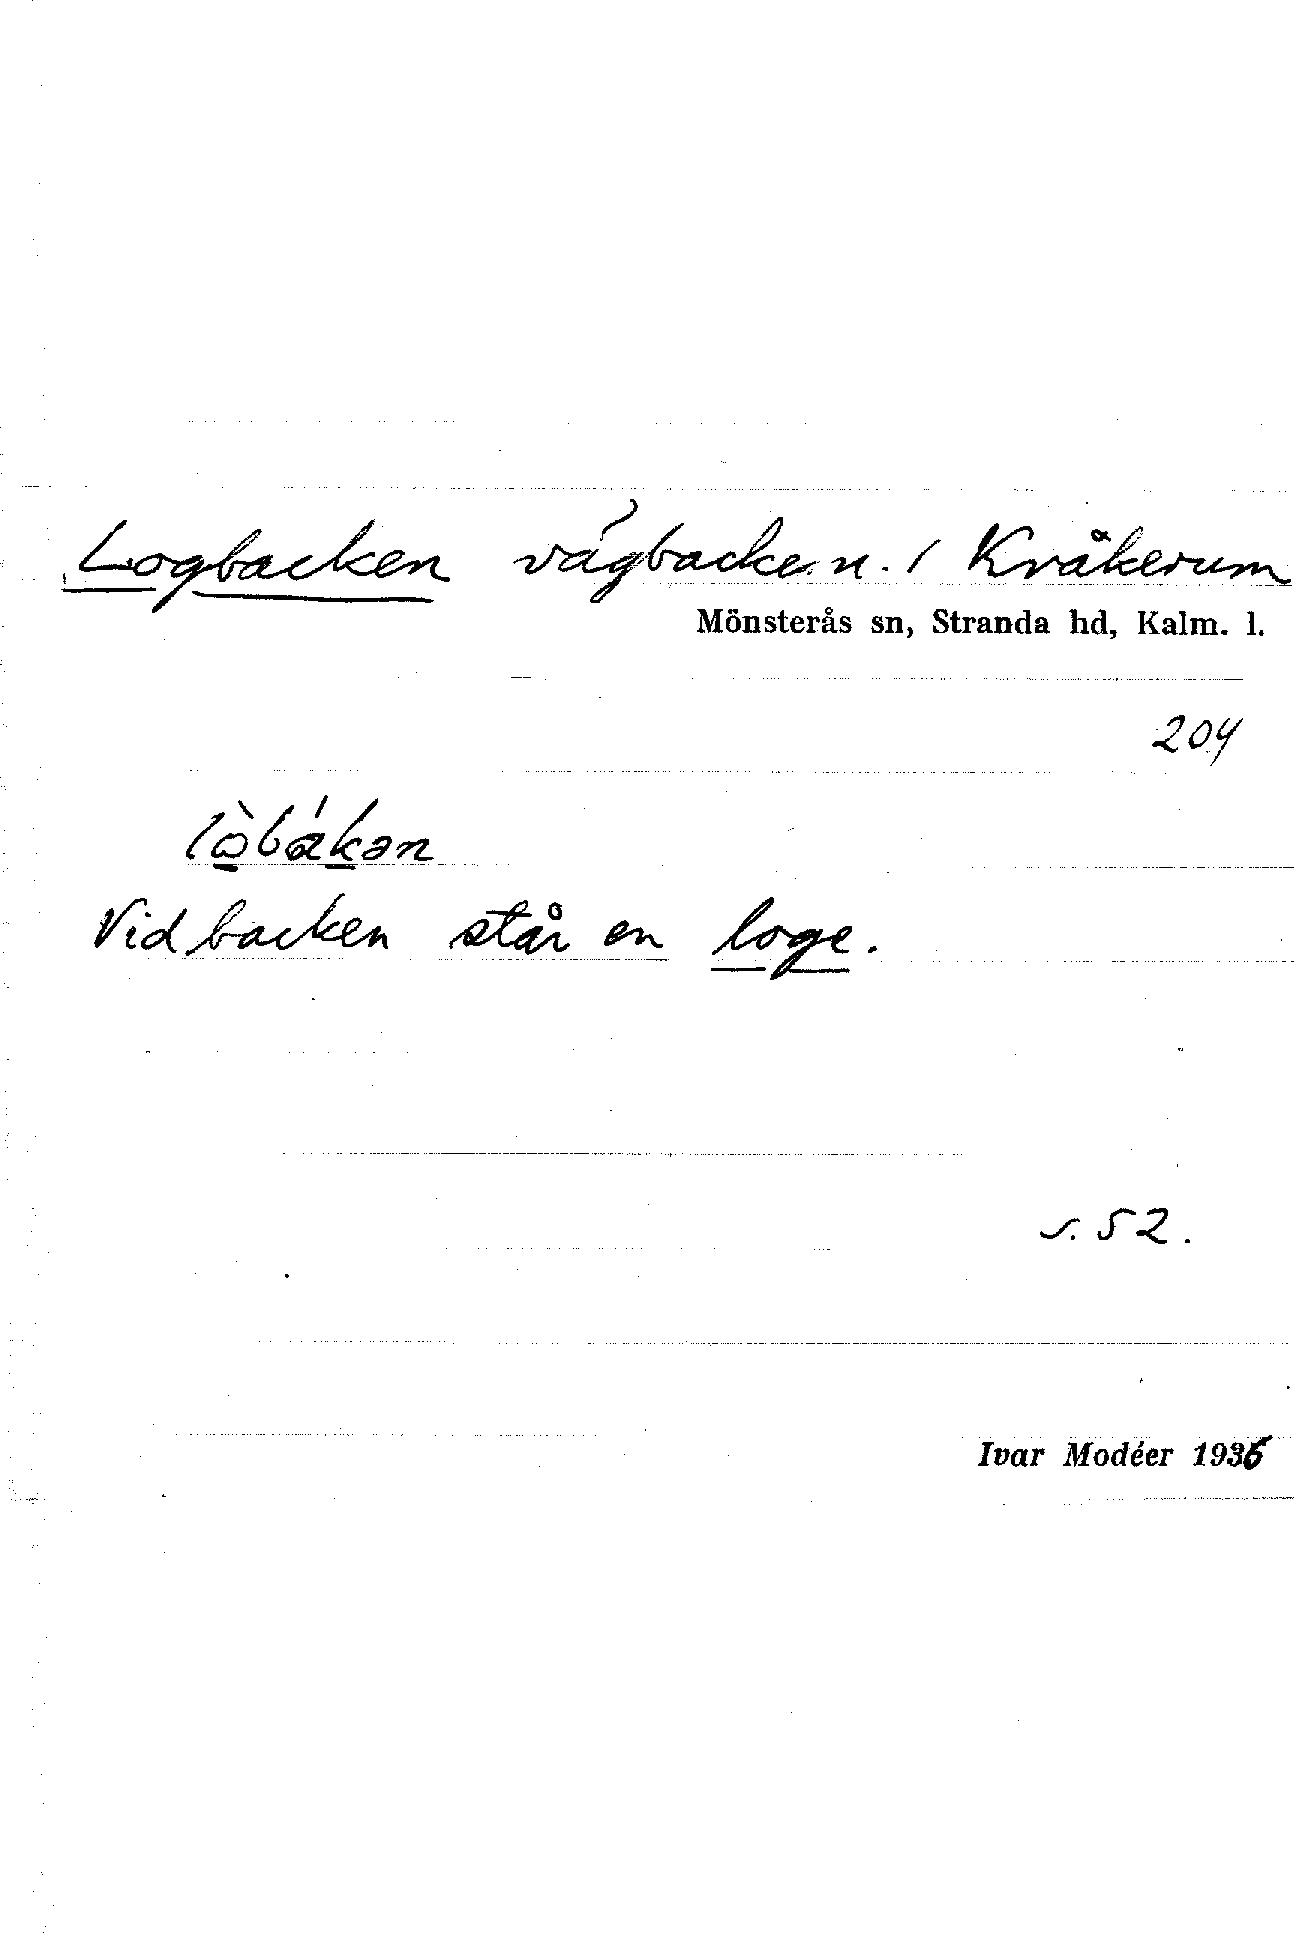 Logbacken vägbacke n. 1 Kråkerum
Mönsterås sn, Stranda hd, Kalm. l.
204
lo̱̊̀bák̠ən
Vid backen står en loge.
s. 52.
Ivar Modéer 1936